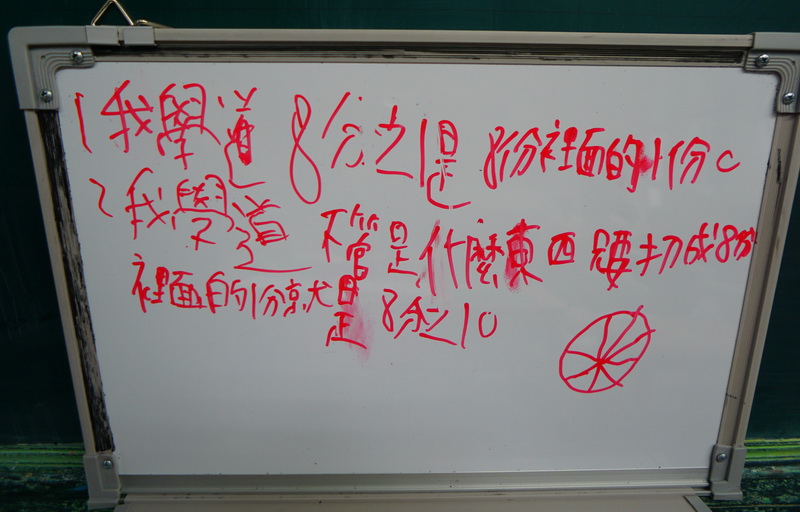 1我學道8分之1是8份裡面的1份。
2我學道不管是什麼東西要切成8份
裡面的1份就是8分之1。